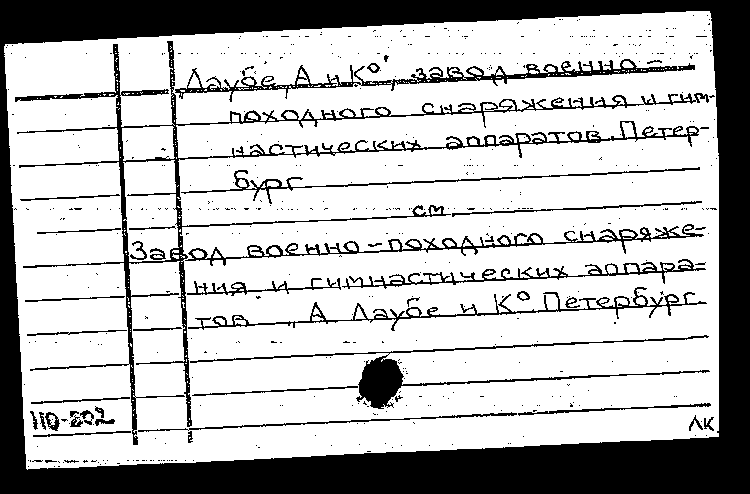 „Лаубе, А и К°", завод военно-
походного снаряжения и гим-
настических аппаратов. Петер-
бург
см.
Завод военно-походного снаряже-
ния и гимнастических аппара-
тов „А Лаубе и К° Петербург.
110-502
ЛК